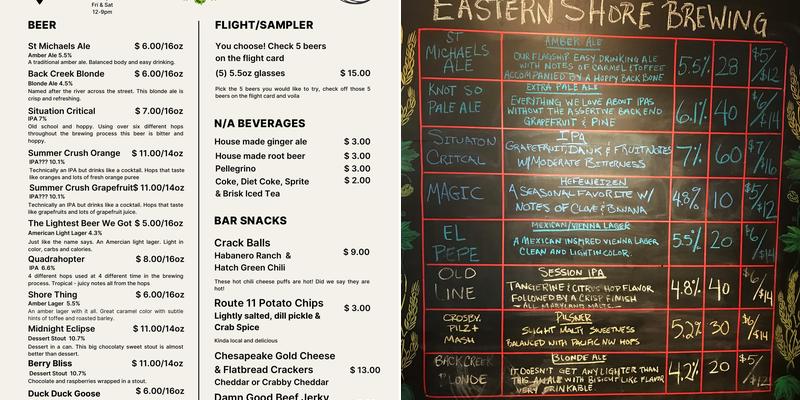 Fri & Sat
12-9pm
BEER
St Michaels Ale $ 6.00/16oz
Amber Ale 5.5%
A traditional amber ale. Balanced body and easy drinking.
Back Creek Blonde $ 6.00/16oz
Blonde Ale 4.5%
Named after the river across the street. This blonde ale is
crisp and refreshing.
Situation Critical $ 7.00/16oz
IPA 7%
Old school and hoppy. Using over six different hops
throughout the brewing process this beer is bitter and
hoppy.
Summer Crush Orange $ 11.00/14oz
IPA??? 10.1%
Technically an IPA but drinks like a cocktail. Hops that taste
like oranges and lots of fresh orange puree
Summer Crush Grapefruit$ 11.00/14oz
IPA??? 10.1%
Technically an IPA but drinks like a cocktail. Hops that taste
like grapefruits and lots of grapefruit juice.
The Lightest Beer We Got $ 5.00/16oz
American Lager 4.3%
Just like the name says. An Amercian light lager. Light in
color, carbs and calories.
Quadrahopter $ 8.00/16oz
IPA 6.6%
4 different hops used at 4 different time in the brewing
process. Tropical - juicy notes all from the hops
Shore Thing $ 6.00/16oz
Amber Lager 5.5%
An amber lager with it all. Great caramel color with subtle
hints of toffee and roasted barley.
Midnight Eclipse $ 11.00/14oz
Dessert Stout 10.7%
Dessert in a can. This big chocolaty sweet stout is almost
better than dessert.
Berry Bliss $ 11.00/14oz
Dessert Stout 10.7%
Chocolate and raspberries wrapped in a stout.
Duck Duck Goose $ 6.00/16oz
FLIGHT/SAMPLER
You choose! Check 5 beers
on the flight card
(5) 5.5oz glasses $ 15.00
Pick the 5 beers you would like to try, check off those 5
beers on the flight card and voila
N/A BEVERAGES
House made ginger ale $ 3.00
House made root beer $ 3.00
Pellegrino $ 3.00
Coke, Diet Coke, Sprite $ 2.00
& Brisk Iced Tea
BAR SNACKS
Crack Balls
Habanero Ranch & $ 9.00
Hatch Green Chili
These hot chili cheese puffs are hot! Did we say they are
hot!
Route 11 Potato Chips
Lightly salted, dill pickle & $ 3.00
Crab Spice
Kinda local and delicious
Chesapeake Gold Cheese
& Flatbread Crackers $ 13.00
Cheddar or Crabby Cheddar
Damn Good Beef Jerky
EASTERN SHORE BREWING
ST MICHAELS ALE
AMBER ALE
OUR FLAGSHIP EASY DRINKING ALE
WITH NOTES OF CARMEL & TOFFEE
ACCOMPANIED BY A HOPPY BACK BONE
5.5% 28 $5/$12
KNOT SO PALE ALE
EXTRA PALE ALE
EVERYTHING WE LOVE ABOUT IPAS
WITHOUT THE ASSERTIVE BACK END
GRAPEFRUIT & PINE
6.1% 40 $6/$14
SITUATON CRITCAL
IPA
GRAPEFRUIT, DANK & FRUIT NOTES
W/ MODERATE BITTERNESS
7% 60 $7/$16
MAGIC
HEFEWEIZEN
A SEASONAL FAVORITE W/
NOTES OF CLOVE & BANANA
4.8% 10 $5/$12
EL PEPE
MEXICAN/VIENNA LAGER
A MEXICAN INSPIRED VIENNA LAGER
CLEAN AND LIGHT IN COLOR.
5.5% 20 $6/$14
OLD LINE
SESSION IPA
TANGERINE & CITRUS HOP FLAVOR
FOLLOWED BY A CRISP FINISH
- ALL MARYLAND MALTS -
4.8% 40 $6/$14
CROSBY, PILZ + MASH
PILSNER
SLIGHT MALTY SWEETNESS
BALANCED WITH PACIFIC NW HOPS
5.2% 30 $6/$14
BACK CREEK BLONDE
BLONDE ALE
IT DOESN'T GET ANY LIGHTER THAN
THIS AN ALE WITH BISICUT LIKE FLAVOR
VERY DRINKABLE.
4.2% 20 $5/$12